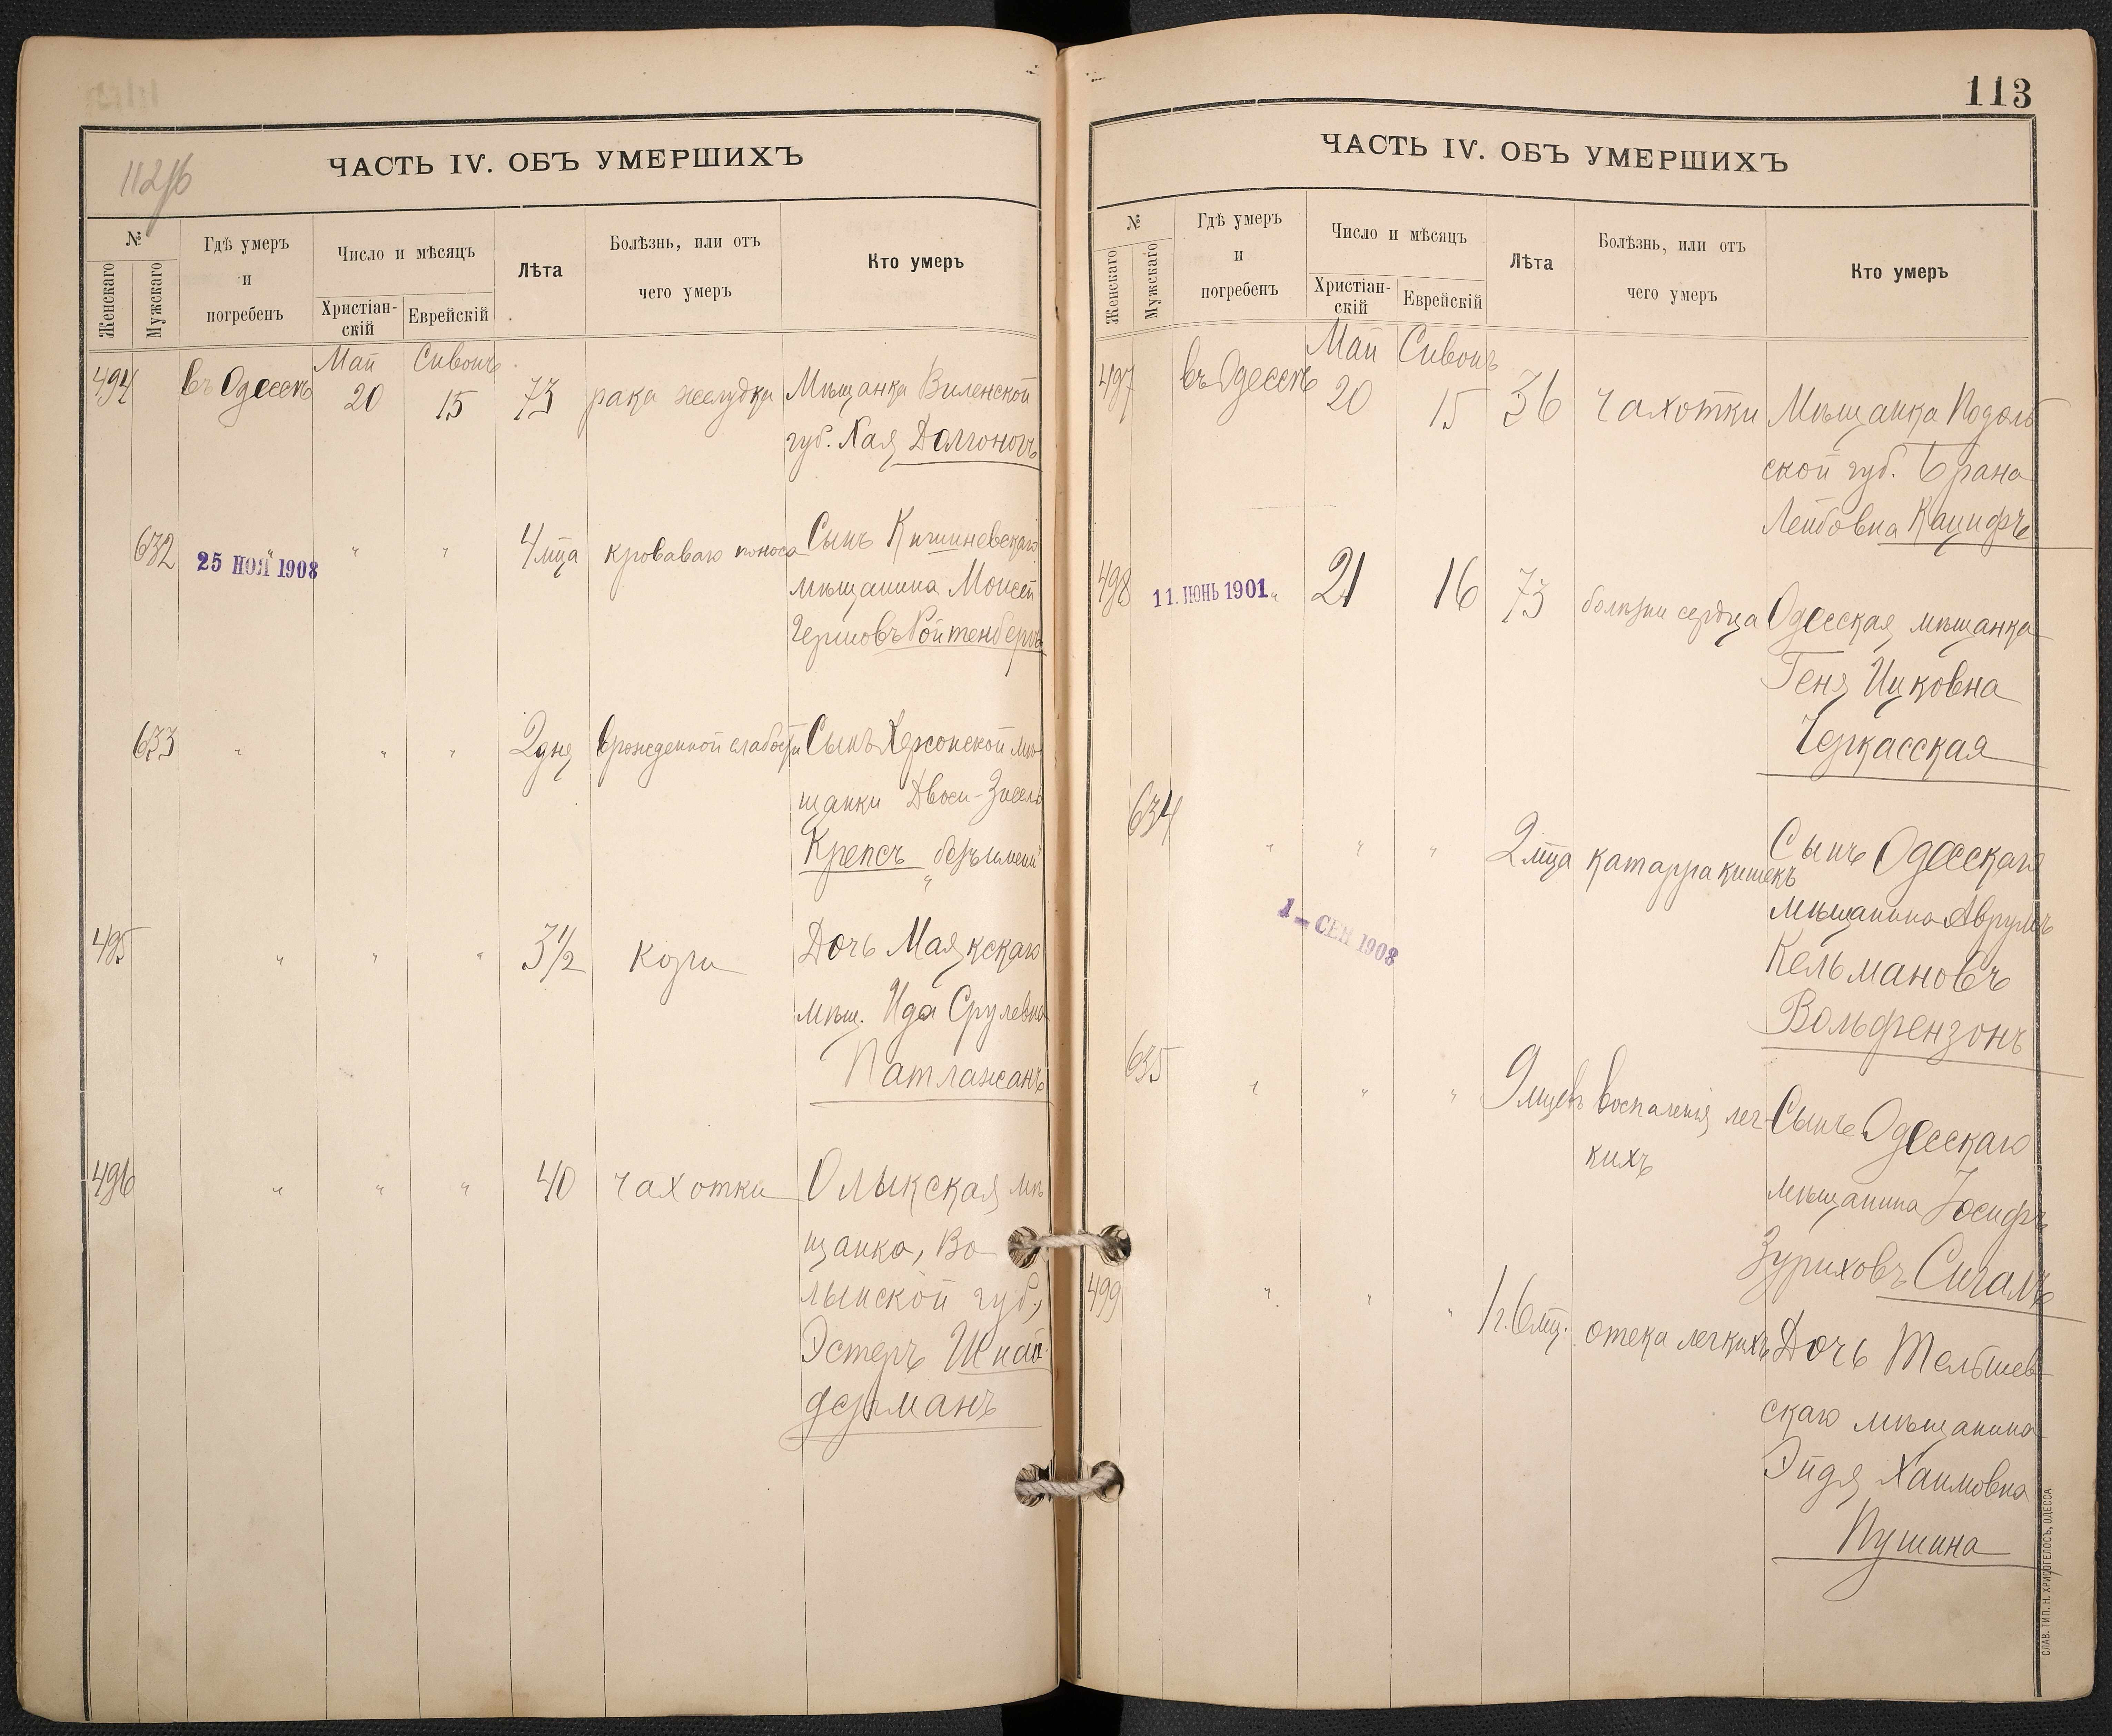 112 об
ЧАСТЬ IV. ОБЪ УМЕРШИХЪ
№
Женскаго
Мужскаго
Гдѣ умеръ
и
погребенъ
Число и мѣсяцъ
Христіан-
скій
Еврейскій
Лѣта
Болѣзнь, или отъ
чего умеръ
Кто умеръ
Май Сивонъ
494 въ Одессѣ 20 15 73 рака желудка Мѣщанка Виленской
губ. Хая Долгоногъ
632 " " " 4 мца кроваваго поноса Сынъ Кишиневскаго
25 НОЯ 1908
мѣщанина Моисей
Гершовъ Ройтенбергъ
633 " " " 2 дня врожденной слабости Сынъ Херсонской мѣ-
щанки Двоси-Зисель
Крепсъ "безъимени"
495 " " " 3 1/2 кори Дочь Маякскаго
мѣщ. Ида Срулевна
Патлажанъ
496 " " " 40 чахотки Олыкская мѣ
щанка, Во
лынской губ.,
Эстеръ Шнай-
дерманъ
113
ЧАСТЬ IV. ОБЪ УМЕРШИХЪ
№
Женскаго
Мужскаго
Гдѣ умеръ
и
погребенъ
Число и мѣсяцъ
Христіан-
скій
Еврейскій
Лѣта
Болѣзнь, или отъ
чего умеръ
Кто умеръ
Май Сивонъ
497 въ Одессѣ 20 15 36 чахотки Мѣщанка Подоль
ской губ. Брана
Лейбовна Кацифъ
498 11. ІЮНЬ 1901 " 21 16 73 болѣзни сердца Одесская мѣщанка
Геня Ицковна
Черкасская
634 " " " 2 мца катарра кишекъ Сынъ Одесскаго
мѣщанина Аврумъ
1 - СЕН 1908
Кельмановъ
Вольфензонъ
635 " " " 9 мцевъ воспаленія лег- Сынъ Одесскаго
кихъ
мѣщанина Іосифъ
Зуриховъ Сигалъ
499 " " " 1 г. 6 мц. отека легкихъ Дочь Тельшев-
скаго мѣщанина
Эйдя Хаимовна
Пушина
СЛАВ. ТИП. Н. ХРИСОГЕЛОСЪ, ОДЕССА